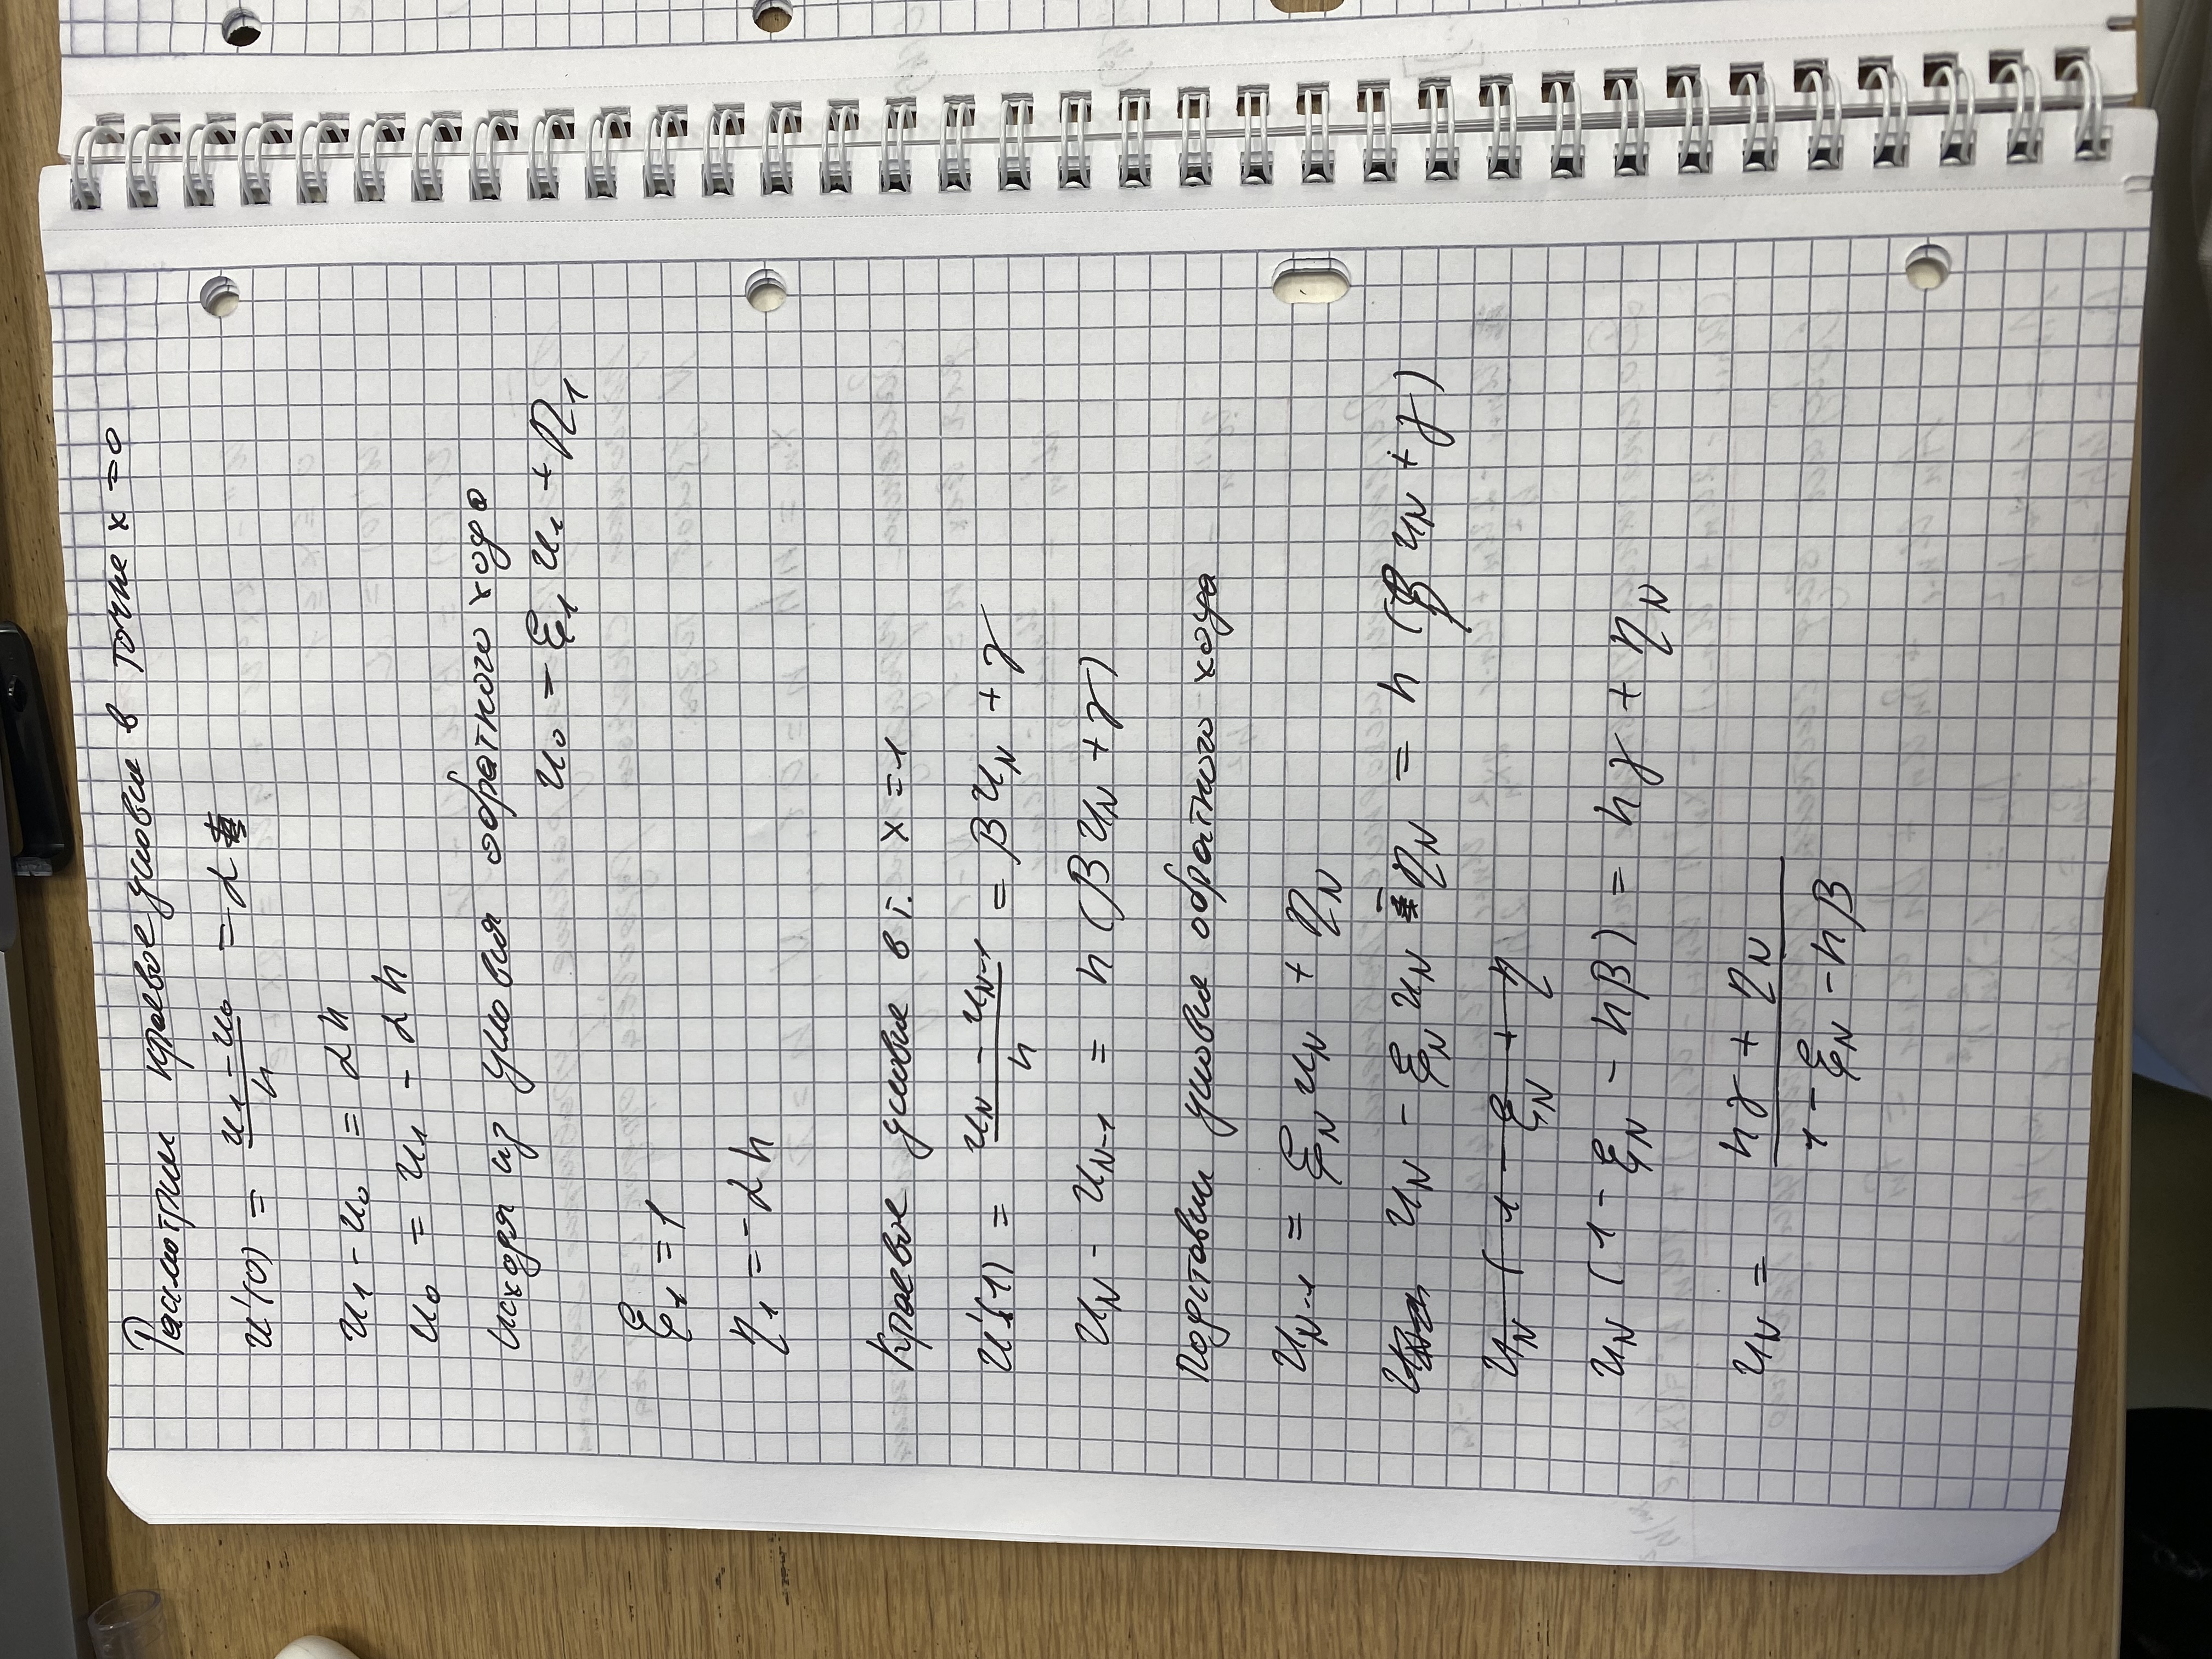 Рассмотрим краевое условие в точке x = 0
u'(0) = (u₁ - u₀)/h = α
u₁ - u₀ = αh
u₀ = u₁ - αh
исходя из условия обратного хода
u₀ = ξ₁ u₁ + η₁
ξ₁ = 1
η₁ = -αh
Краевое условие в т. x = 1
u'(1) = (u_N - u_{N-1})/h = βu_N + γ
u_N - u_{N-1} = h(βu_N + γ)
Подставим условие обратного хода
u_{N-1} = ξ_N u_N + η_N
u_N - ξ_N u_N - η_N = h(βu_N + γ)
u_N (1 - ξ_N + η
u_N (1 - ξ_N - hβ) = hγ + η_N
u_N = (hγ + η_N)/(1 - ξ_N - hβ)